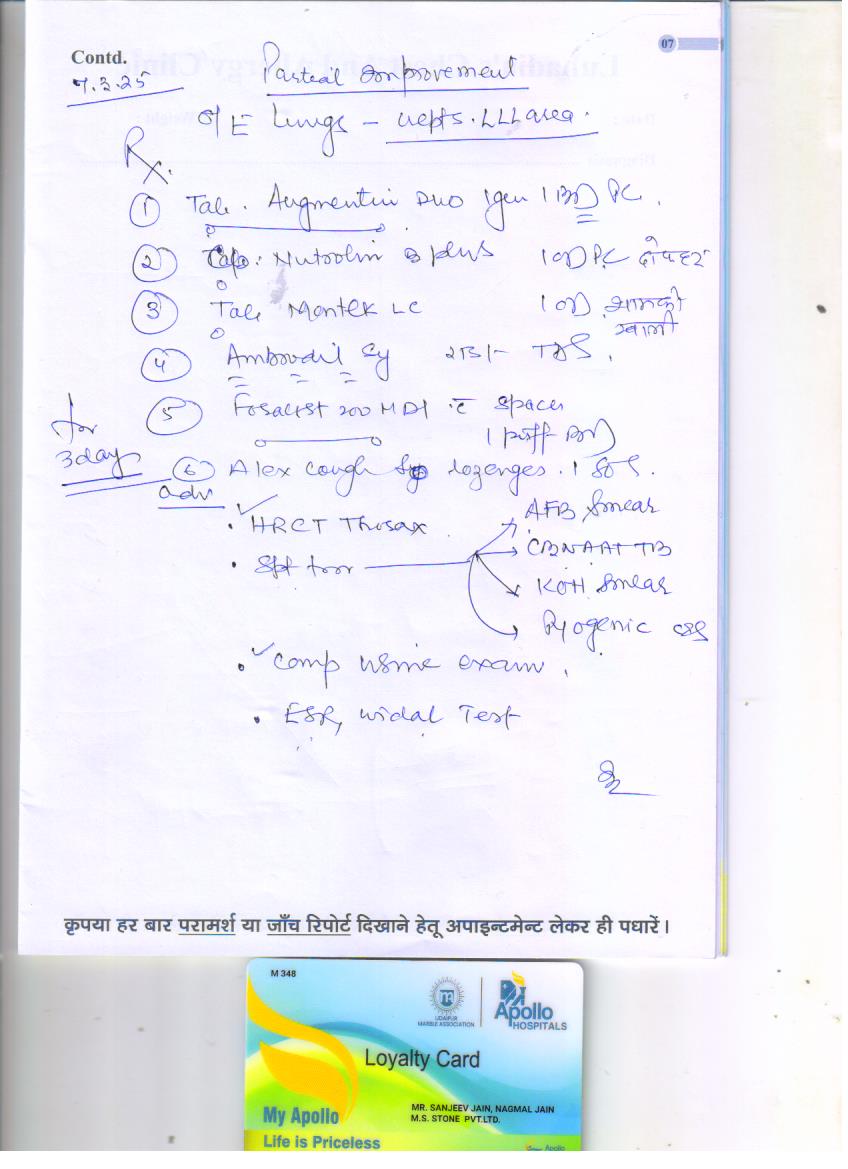 07
Contd.
7.3.25
Partial Improvement
O/E Lungs - crepts. LLL area.
Rx.
① Tab. Augmentin Duo 1gm 1 BD PC.
② Cap. Nutrolin B plus 1 OD PC दोपहर ने
③ Tab Montek LC 1 OD शामको
खाली
④ Ambrodil Sy 2TS/- TDS.
⑤ Foracort 200 MDI c̄ Spacer
1 puff BD
for
3 day
⑥ Alex cough lozenges. 1 SOS.
adv
• HRCT Thorax
• Spt for
AFB Smear
CBNAAT TB
KOH Smear
Pyogenic c/s
• Comp urine exam.
• ESR, Widal Test
कृपया हर बार परामर्श या जाँच रिपोर्ट दिखाने हेतू अपाइन्टमेन्ट लेकर ही पधारें।
M 348
UDAIPUR
MARBLE ASSOCIATION
Apollo
HOSPITALS
Loyalty Card
MR. SANJEEV JAIN, NAGMAL JAIN
M.S. STONE PVT.LTD.
My Apollo
Life is Priceless
Apollo